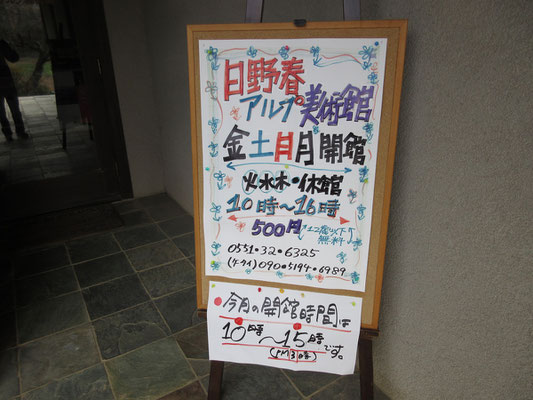 日野春
アルプ美術館
金土日月開館
火水木・休館
10時〜16時
500円 12歳以下
無料
0551・32・6325
(ケータイ)090・5194・6989
今月の開館時間は
10時〜15時です。
(PM3時)